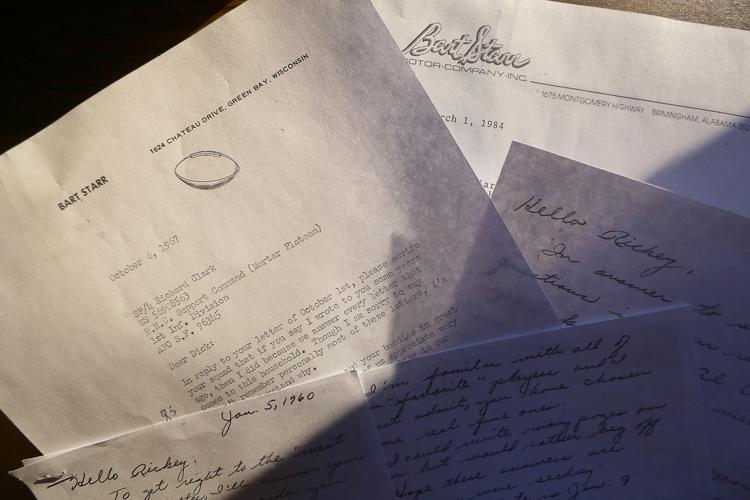 BART STARR
1624 CHATEAU DRIVE, GREEN BAY, WISCONSIN
October 6, 1967
SP/4 Richard Clark
US 56908563
Support Command (Mortar Platoon)
1st Inf. Division
APO S.F. 96345
Dear Dick:
In reply to your letter of October 1st, please advise
your squad that if you say I wrote to you some years
ago, then I did because we answer every letter that
comes to this household. Though I am sorry to say
remember personally most of these letters, I'm
stand why.
and your buddies in great
us appreciate very
in our
Bart Starr
MOTOR·COMPANY·INC.
1675 MONTGOMERY HIGHWAY BIRMINGHAM, ALABAMA
rch 1, 1984
Hello Rickey,
In answer to
Jan. 5, 1960
Hello Rickey.
To get right to the "meat
I'm familiar with all of
"favorite" players and I
admit, you have chosen
me real fine ones.
I could write many pages on
but would rather beg off.
hope these answers are
were seeking.
is Jan. 9.